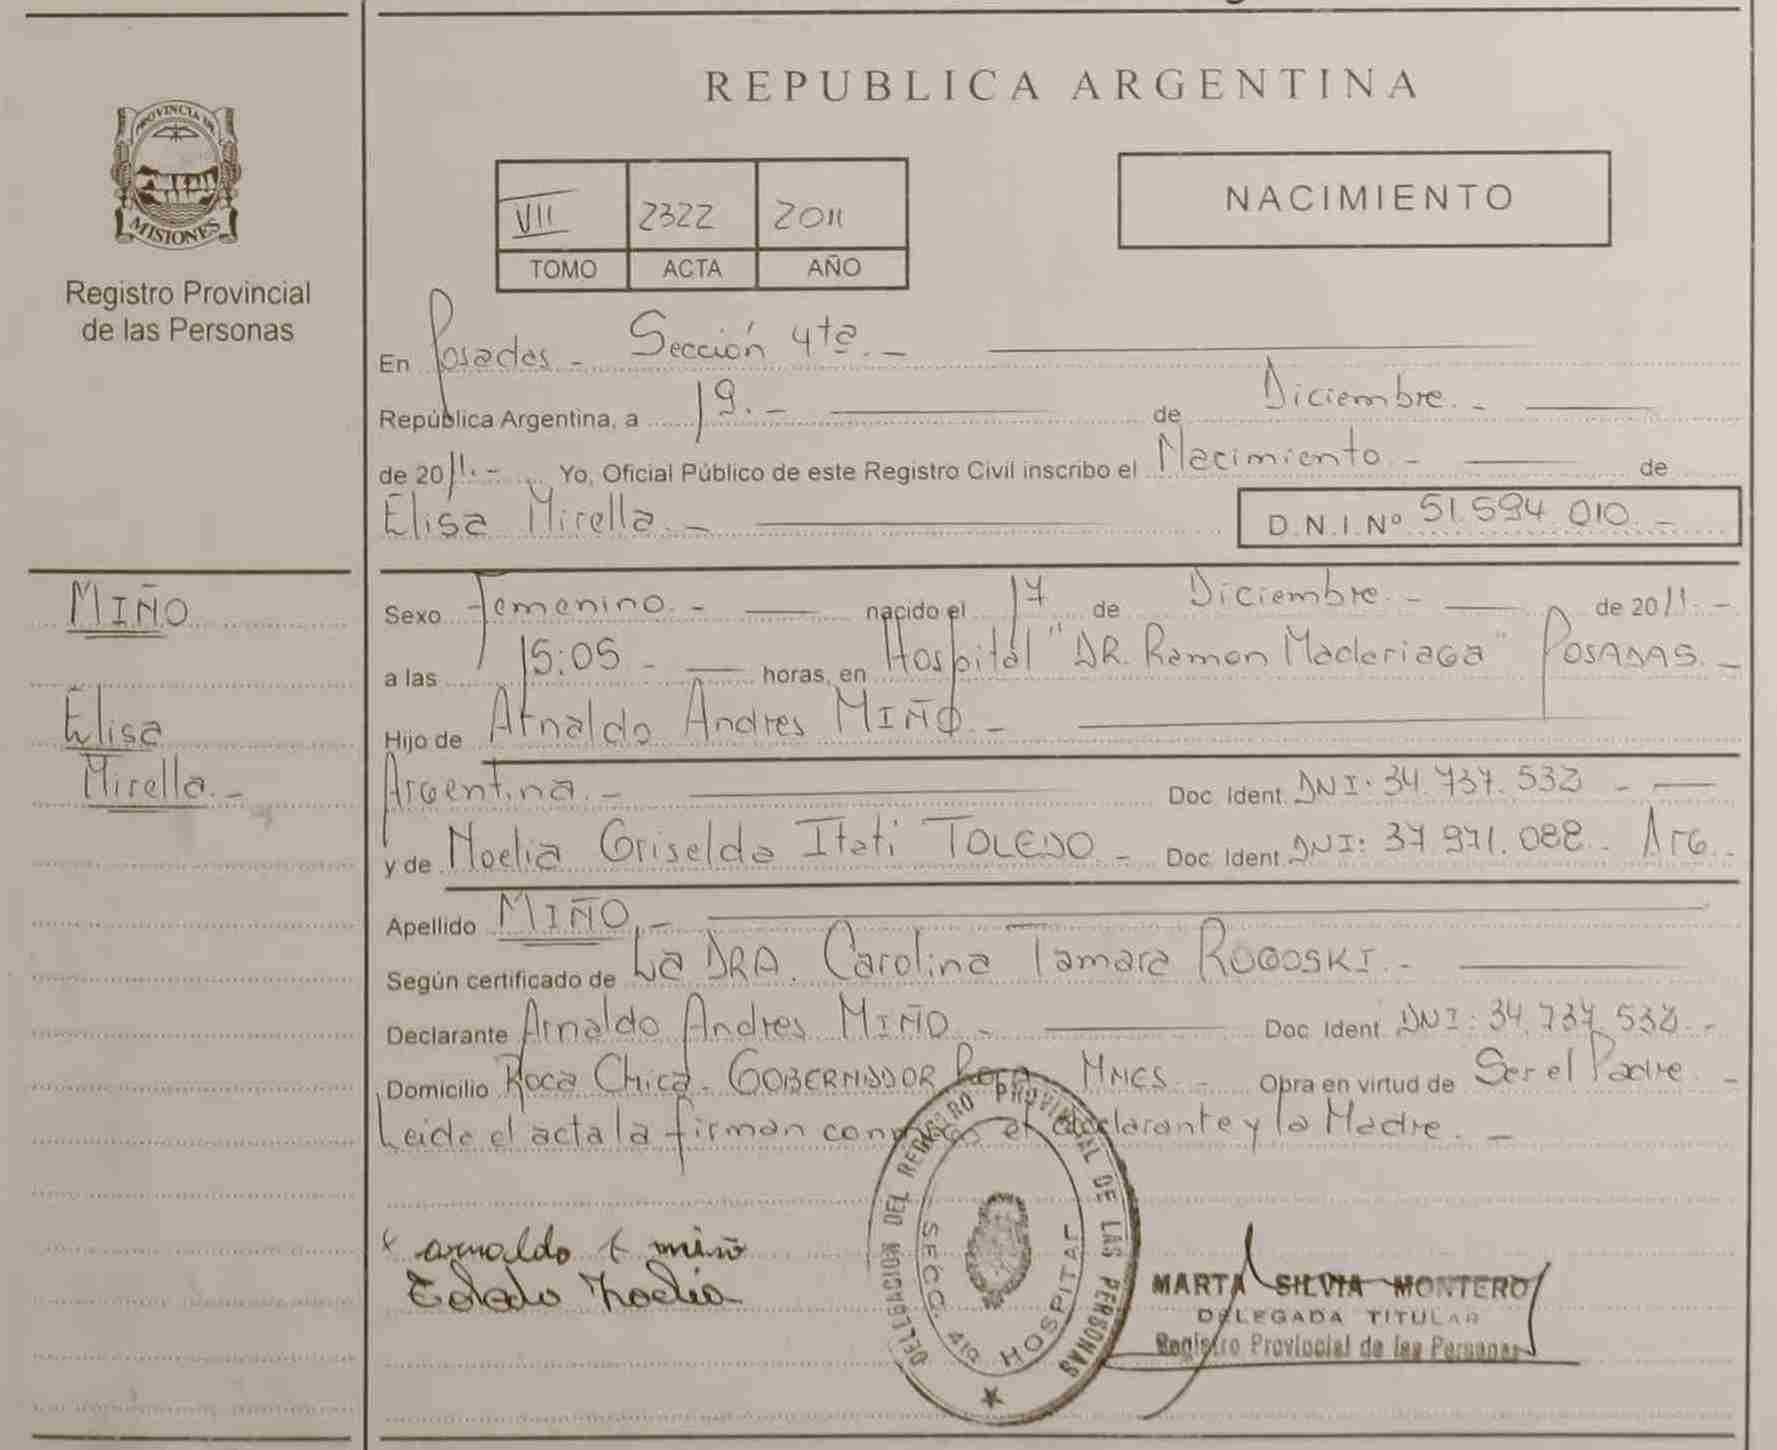 REPUBLICA ARGENTINA
PROVINCIA DE
MISIONES
Registro Provincial
de las Personas
VII 2322 2011
TOMO ACTA AÑO
NACIMIENTO
En Posadas - Sección 4ta. -
República Argentina, a 19. - de Diciembre. -
de 2011. - Yo, Oficial Público de este Registro Civil inscribo el Nacimiento - de
Elisa Mirella. - D.N.I.Nº 51.594.010. -
MIÑO
Elisa
Mirella. -
Sexo Femenino. - nacido el 17 de Diciembre. - de 2011. -
a las 15:05 - horas, en Hospital "DR. Ramon Madariaga" POSADAS. -
Hijo de Arnaldo Andres MIÑO. -
Argentina. - Doc Ident. DNI: 34.737.532 -
y de Noelia Griselda Itati TOLEDO - Doc Ident. DNI: 37.971.088 - Arg.
Apellido MIÑO. -
Según certificado de La DRA. Carolina Tamara ROGOSKI. -
Declarante Arnaldo Andres MIÑO - Doc Ident. DNI: 34.737.532. -
Domicilio Roca Chica - GOBERNADOR Roca Mnes. - Obra en virtud de Ser el Padre -
Leida el acta la firman conmigo el declarante y la Madre. -
arnaldo A miño
Toledo Noelia
DELEGACION DEL REGISTRO PROVINCIAL DE LAS PERSONAS
SECC. 4ta HOSPITAL
MARTA SILVIA MONTERO
DELEGADA TITULAR
Registro Provincial de las Personas